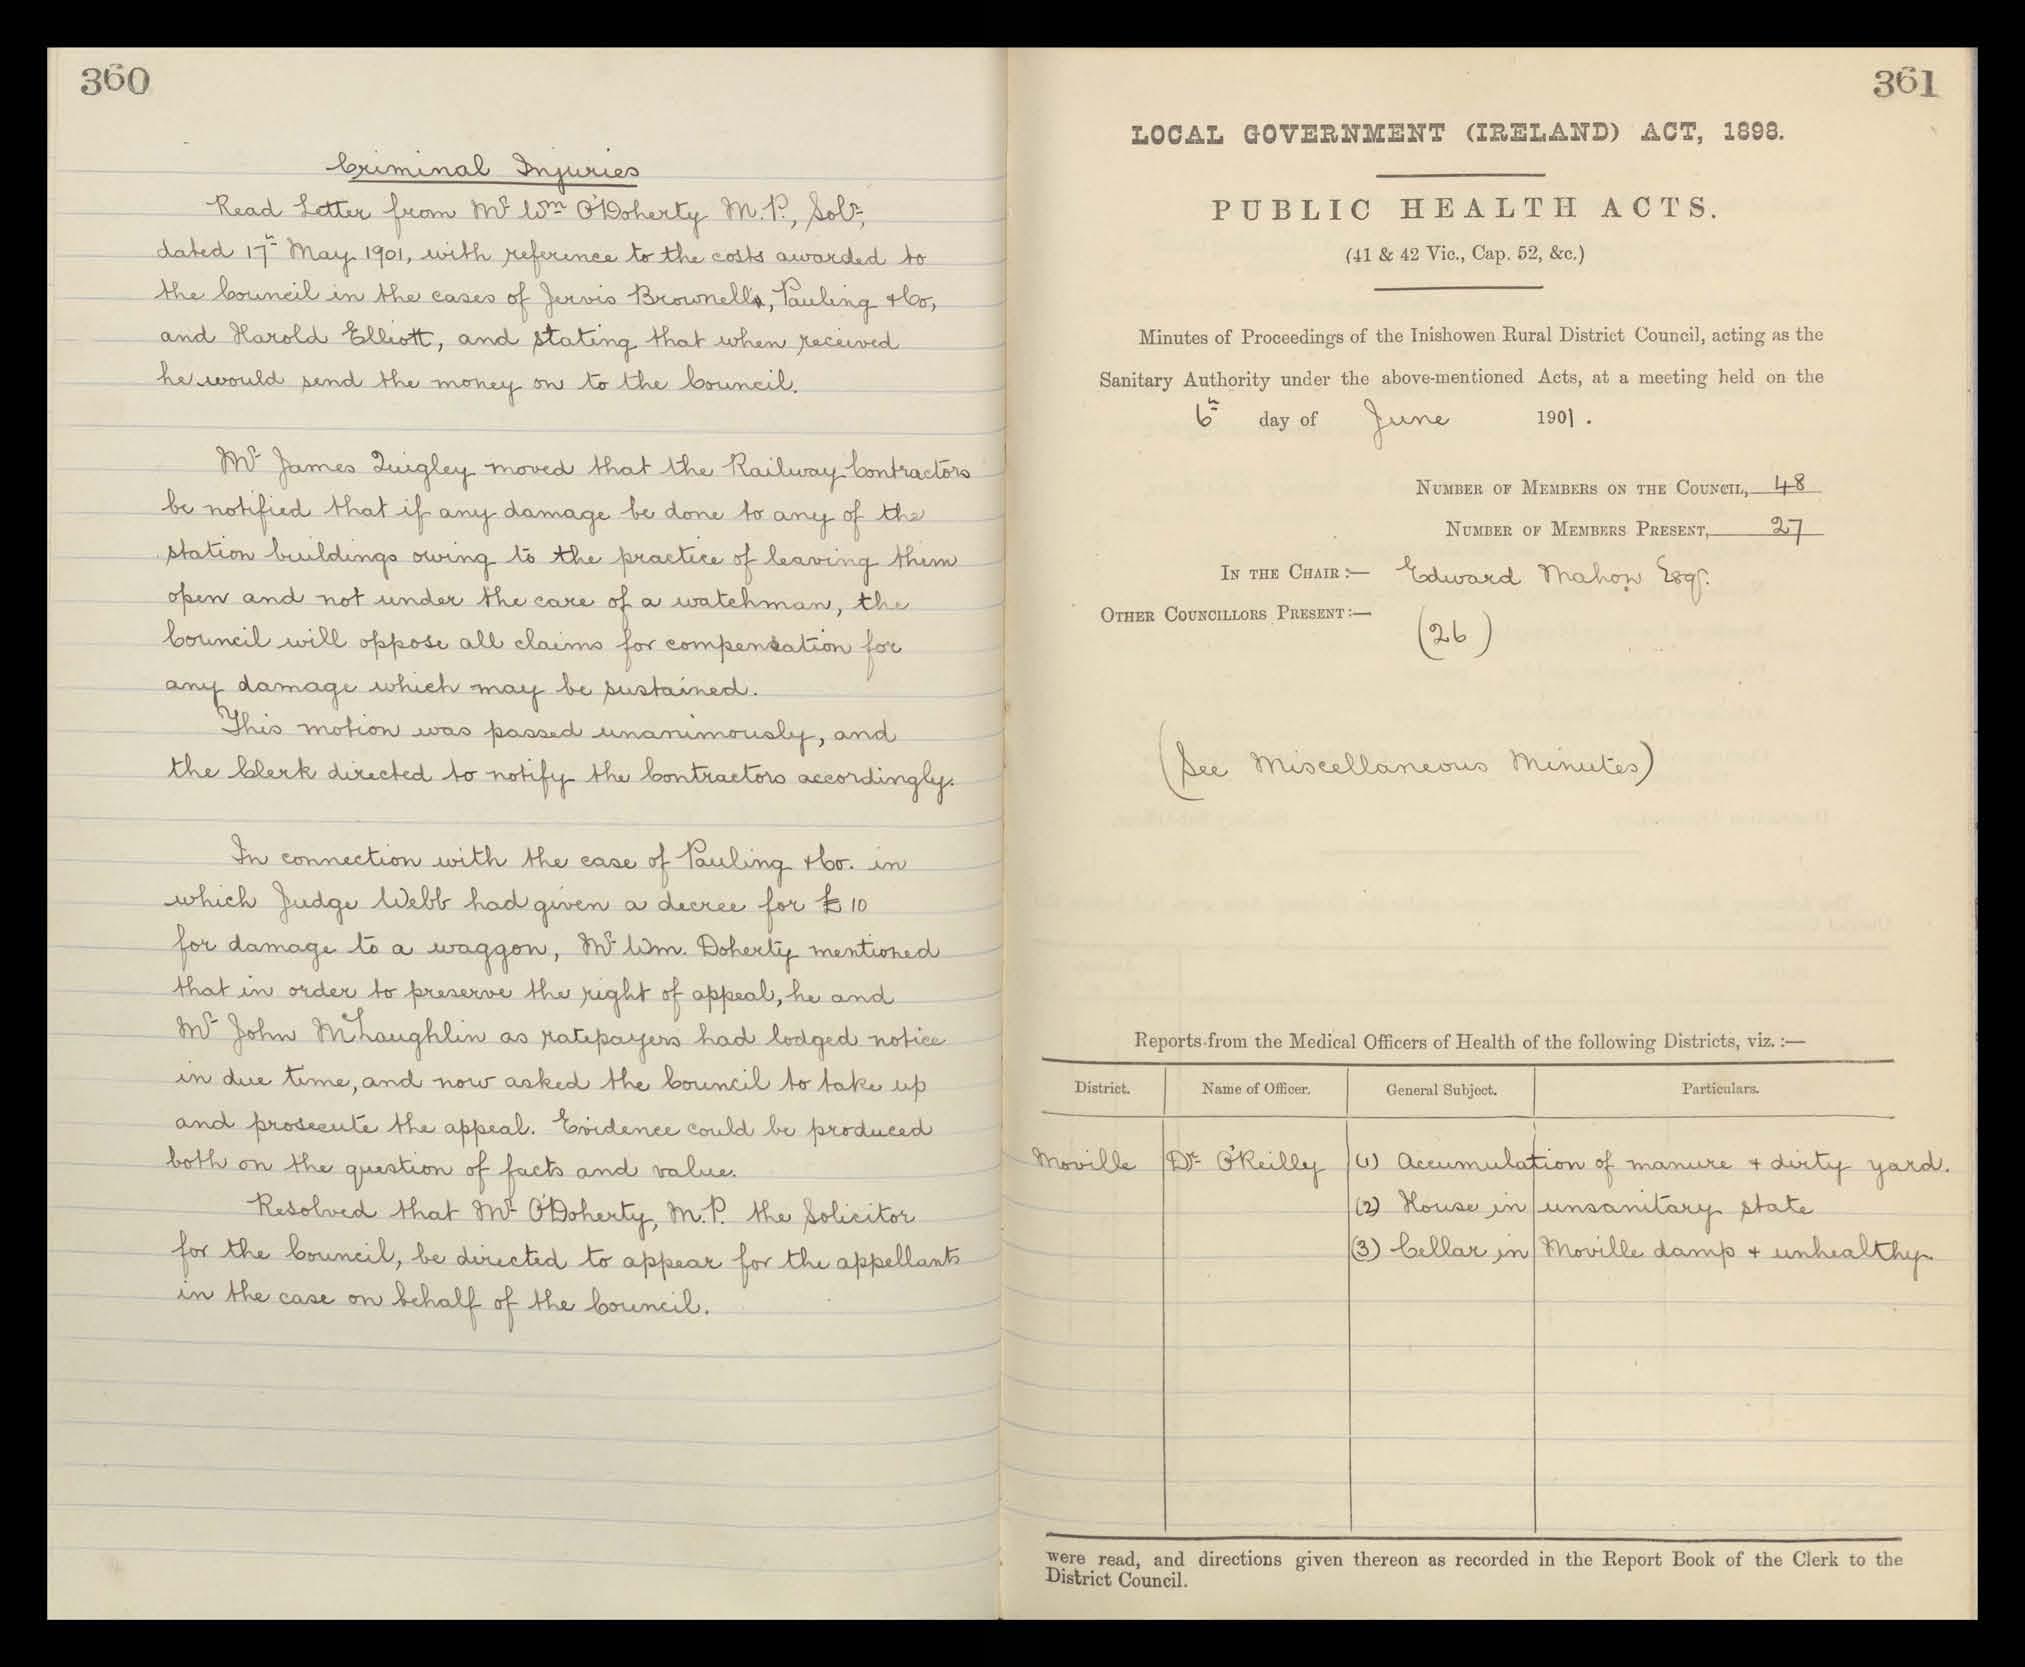 360
Criminal Injuries
Read Letter from Mr Wm O'Doherty M.P., Solr,
dated 17th May 1901, with reference to the costs awarded to
the Council in the cases of Jervis Brownell, Pauling & Co,
and Harold Elliott, and stating that when received
he would send the money on to the Council.
Mr James Quigley moved that the Railway Contractors
be notified that if any damage be done to any of the
station buildings owing to the practice of leaving them
open and not under the care of a watchman, the
Council will oppose all claims for compensation for
any damage which may be sustained.
This motion was passed unanimously, and
the Clerk directed to notify the Contractors accordingly.
In connection with the case of Pauling & Co. in
which Judge Webb had given a decree for £10
for damage to a waggon, Mr Wm. Doherty mentioned
that in order to preserve the right of appeal, he and
Mr John McLaughlin as ratepayers had lodged notice
in due time, and now asked the Council to take up
and prosecute the appeal. Evidence could be produced
both on the question of facts and value.
Resolved that Mr O'Doherty, M.P. the Solicitor
for the Council, be directed to appear for the appellants
in the case on behalf of the Council.
361
LOCAL GOVERNMENT (IRELAND) ACT, 1898.
PUBLIC HEALTH ACTS.
(41 & 42 Vic., Cap. 52, &c.)
Minutes of Proceedings of the Inishowen Rural District Council, acting as the
Sanitary Authority under the above-mentioned Acts, at a meeting held on the
6th day of June 1901.
NUMBER OF MEMBERS ON THE COUNCIL, 48
NUMBER OF MEMBERS PRESENT, 27
IN THE CHAIR:— Edward Mahon Esqr.
OTHER COUNCILLORS PRESENT:—
(26)
(See Miscellaneous Minutes)
Reports from the Medical Officers of Health of the following Districts, viz. :—
District. Name of Officer. General Subject. Particulars.
Moville Dr O'Reilly (1) Accumulation of manure & dirty yard.
(2) House in unsanitary state
(3) Cellar in Moville damp & unhealthy
were read, and directions given thereon as recorded in the Report Book of the Clerk to the
District Council.